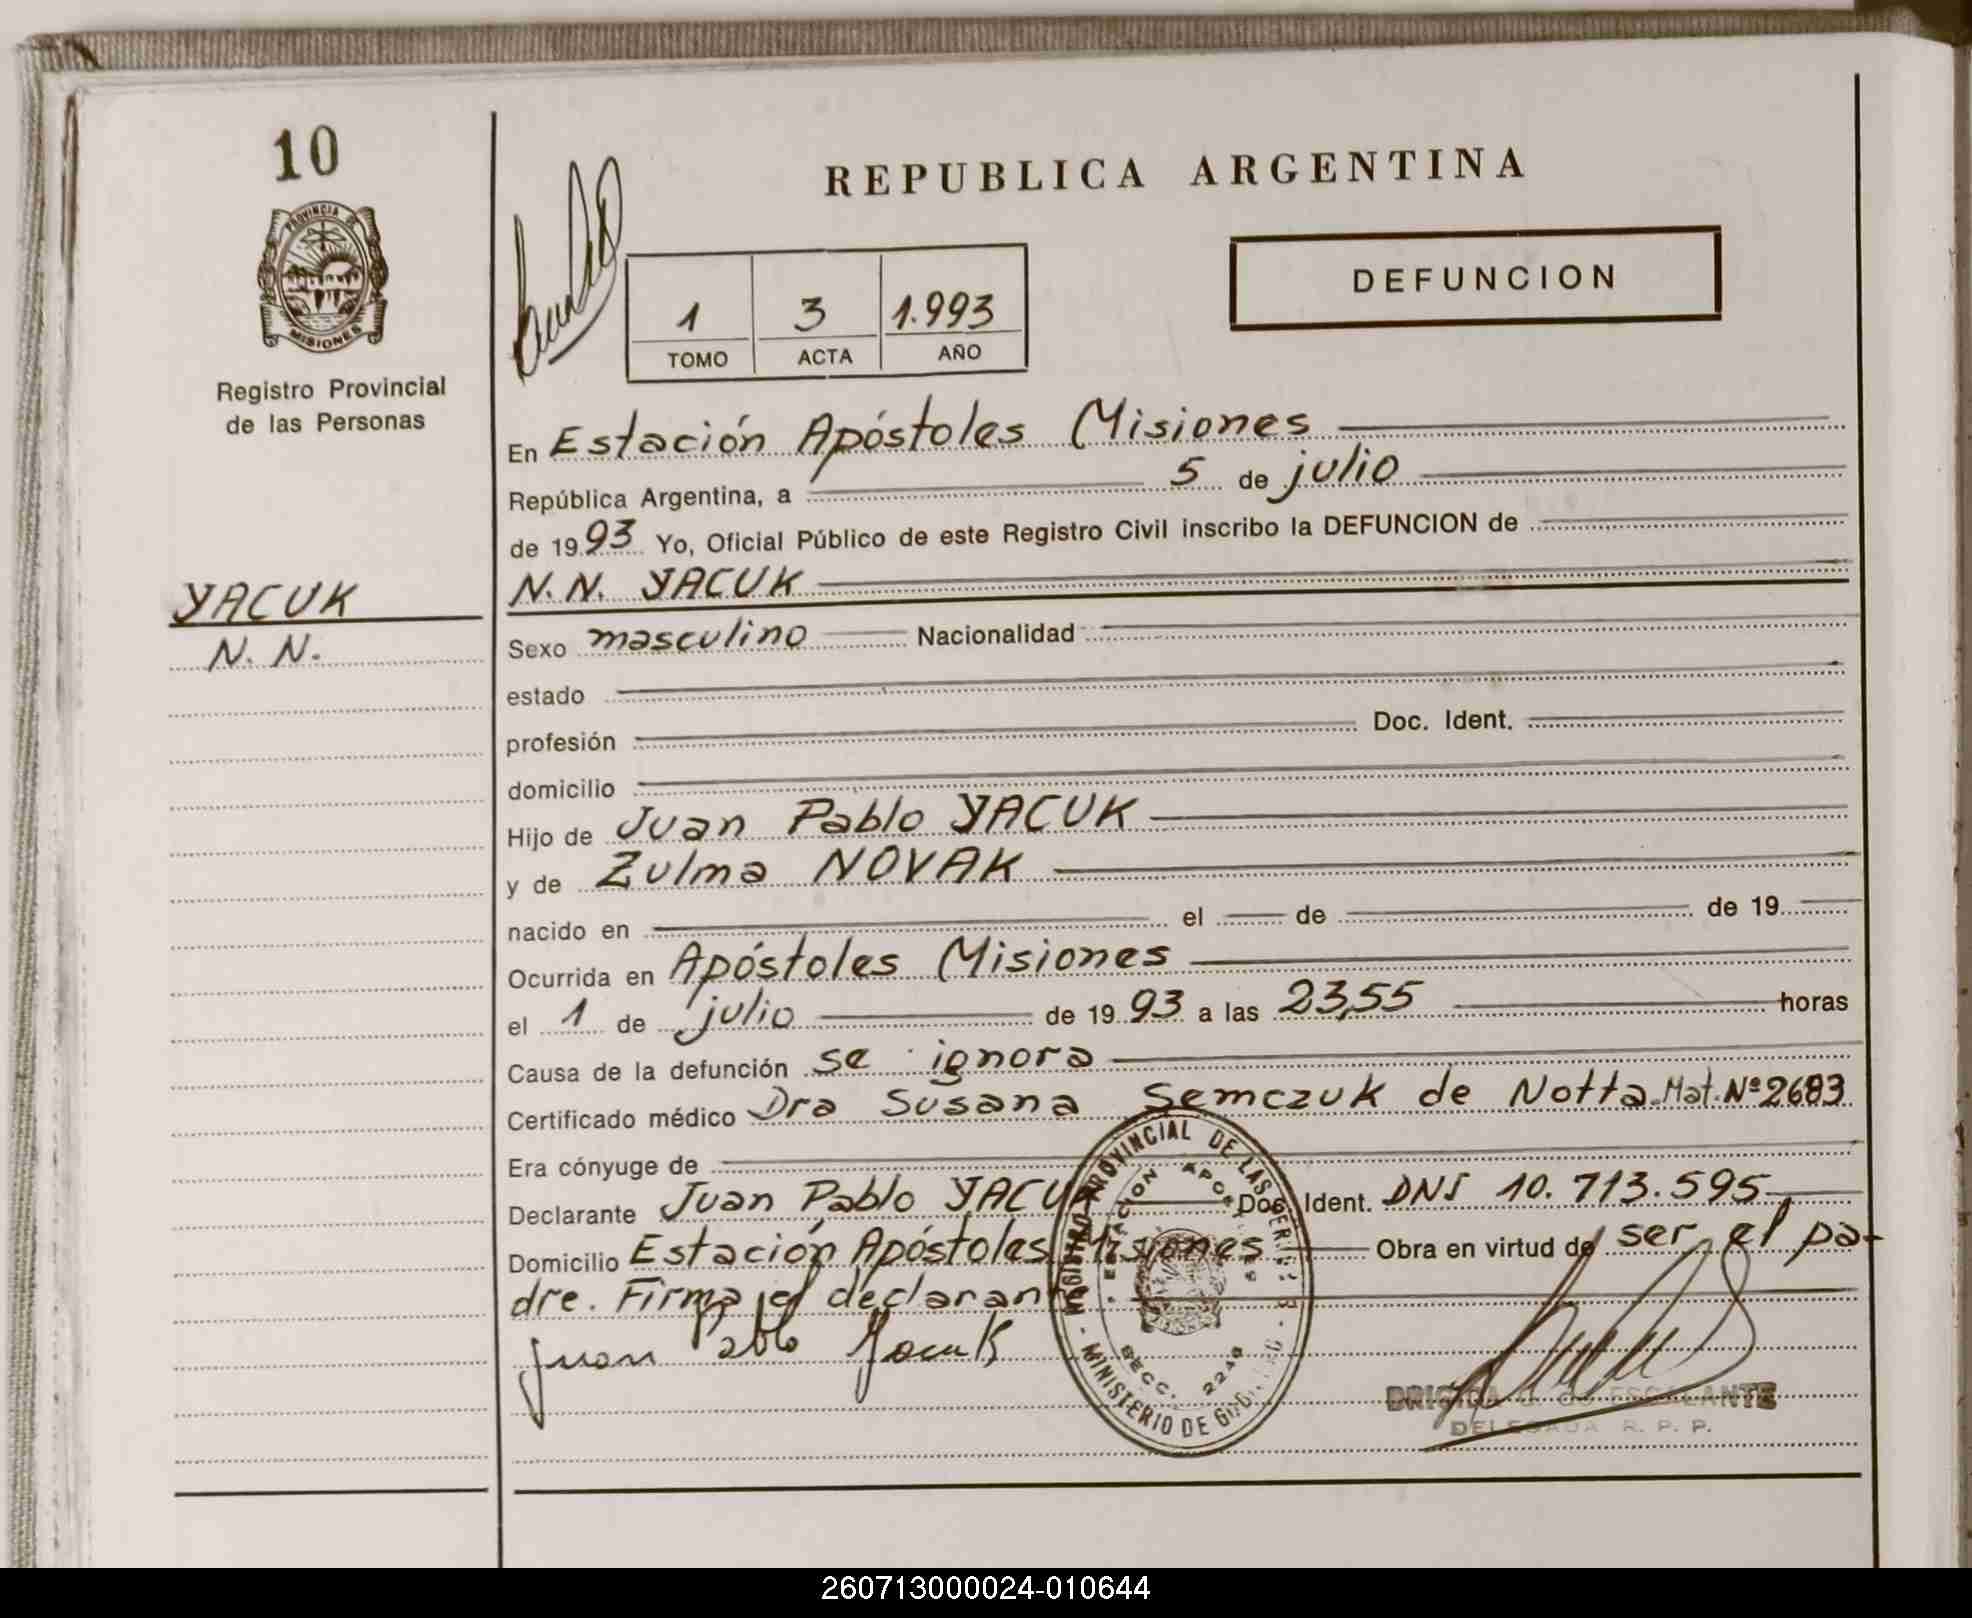 10
PROVINCIA DE
MISIONES
Registro Provincial
de las Personas
YACUK
N. N.
REPUBLICA ARGENTINA
DEFUNCION
1 3 1.993
TOMO ACTA AÑO
En Estación Apóstoles Misiones
República Argentina, a 5 de julio
de 1993 Yo, Oficial Público de este Registro Civil inscribo la DEFUNCION de
N. N. YACUK
Sexo masculino Nacionalidad
estado
profesión Doc. Ident.
domicilio
Hijo de Juan Pablo YACUK
y de Zulma NOVAK
nacido en el de de 19
Ocurrida en Apóstoles Misiones
el 1 de julio de 1993 a las 23,55 horas
Causa de la defunción se ignora
Certificado médico Dra Susana Semczuk de Notta Mat. Nº 2683
Era cónyuge de
Declarante Juan Pablo YACUK Doc. Ident. DNI 10.713.595
Domicilio Estación Apóstoles Misiones Obra en virtud de ser el pa-
dre. Firma el declarante
Juan Pablo Yacuk
REGISTRO PROVINCIAL DE LAS PERSONAS
ESTACION APOSTOLES
SECC. 2240
MINISTERIO DE GOBIERNO
BRIGIDA ESCALANTE
DELEGADA R. P. P.
260713000024-010644